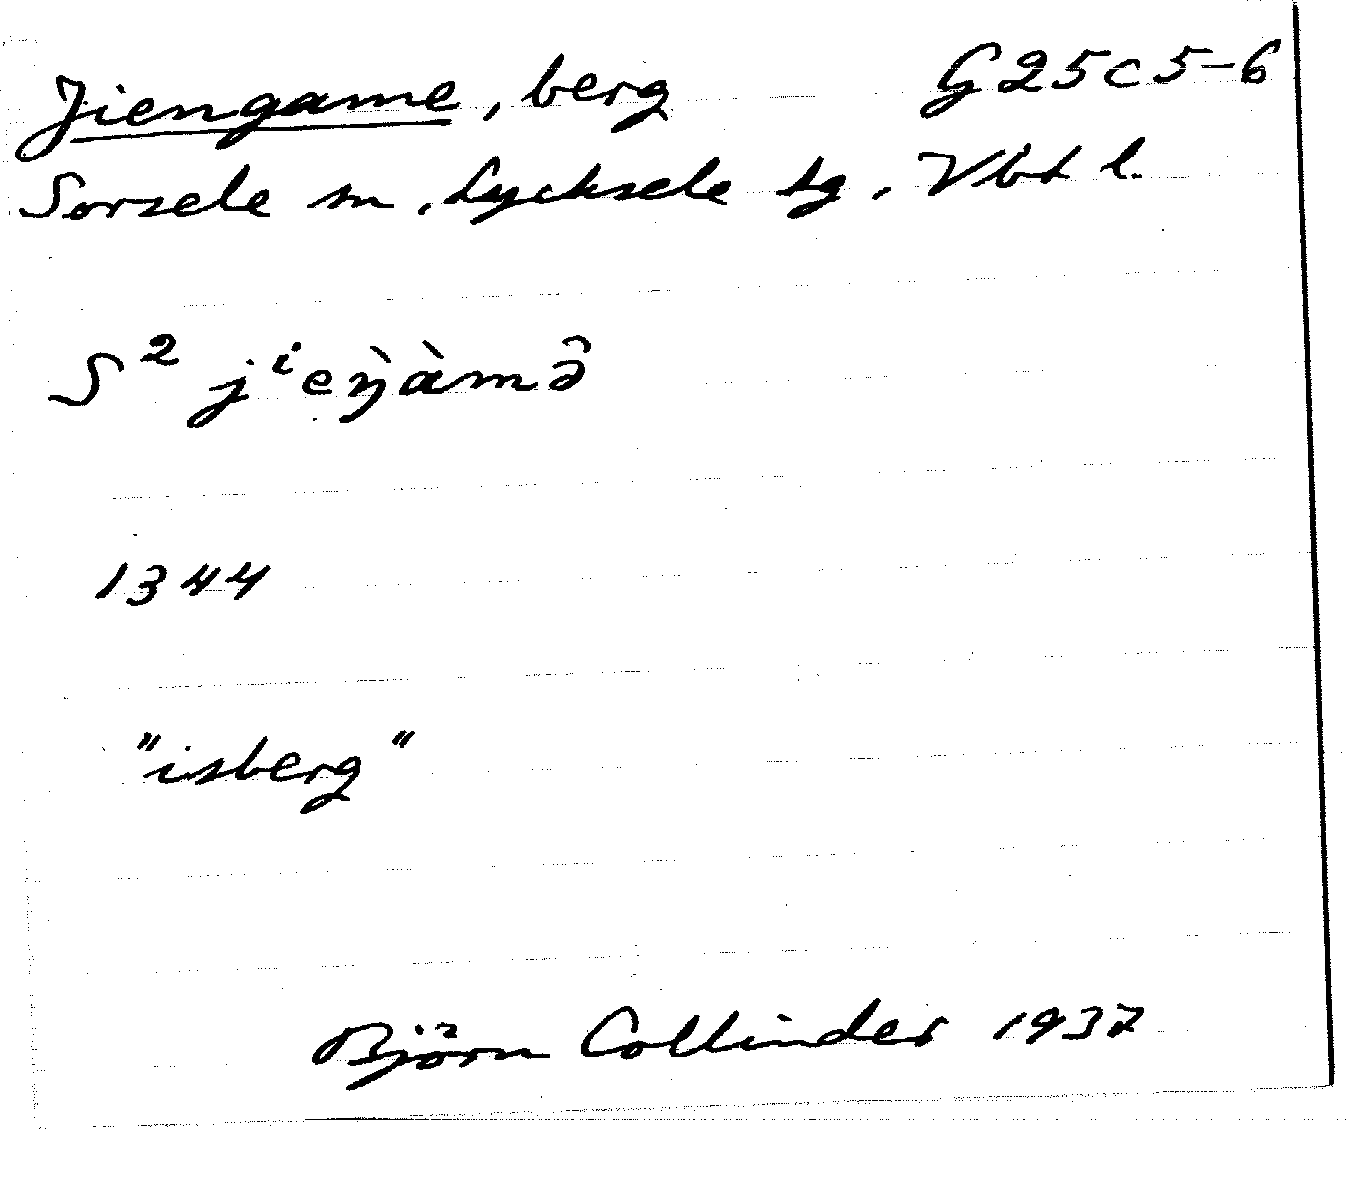 Jiengame, berg G25c5-6
Sorsele sn, Lycksele tg, Vbt l.
S² jⁱeŋ̀àmə̂
1344
"isberg"
Björn Collinder 1937